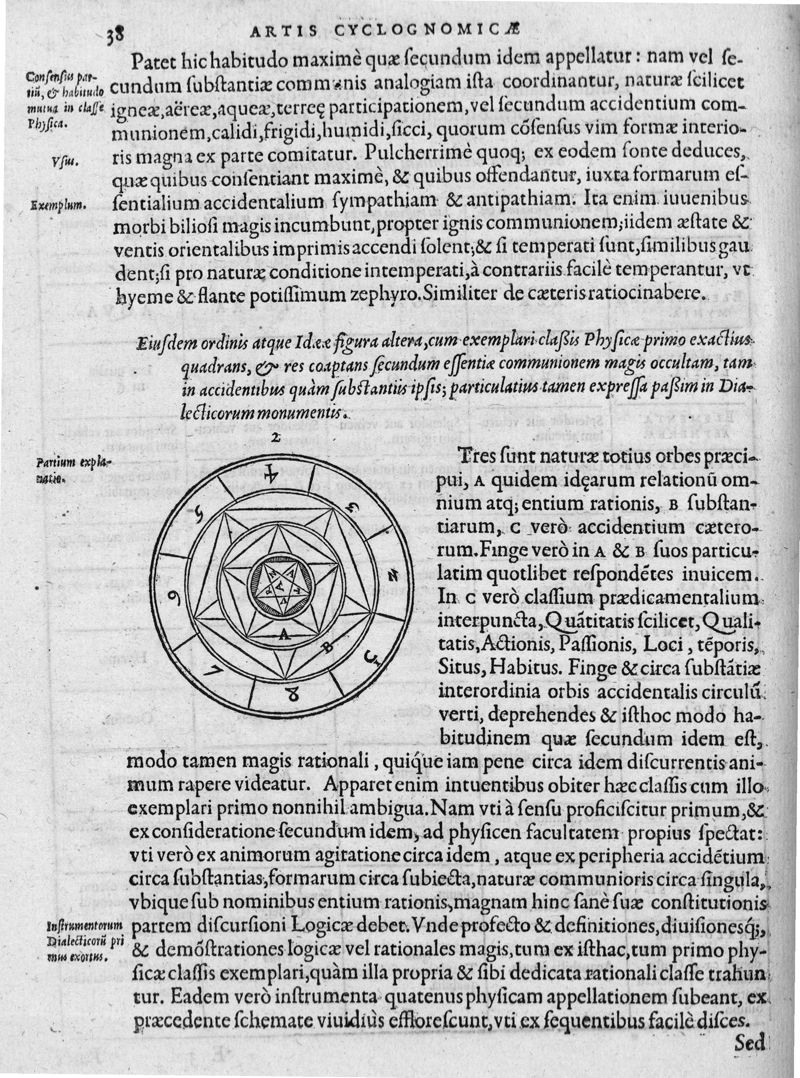 38
ARTIS CYCLOGNOMICÆ
Patet hic habitudo maximè quæ ſecundum idem appellatur : nam vel ſe-
cundum ſubſtantiæ communis analogiam iſta coordinantur, naturæ ſcilicet
igneæ,aëreæ,aqueæ,terreę participationem,vel ſecundum accidentium com-
munionem,calidi,frigidi,humidi,ſicci, quorum cõſenſus vim formæ interio-
ris magna ex parte comitatur. Pulcherrimè quoq; ex eodem fonte deduces,
quæ quibus conſentiant maximè, & quibus offendantur, iuxta formarum eſ-
ſentialium accidentalium ſympathiam & antipathiam. Ita enim iuuenibus
morbi bilioſi magis incumbunt,propter ignis communionem;iidem æſtate &
ventis orientalibus imprimis accendi ſolent;& ſi temperati ſunt,ſimilibus gau
dent;ſi pro naturæ conditione intemperati,à contrariis facilè temperantur, vt
hyeme & flante potiſſimum zephyro.Similiter de cæteris ratiocinabere.
Conſenſus par-
tiũ, & habitudo
mutua in claſſe
Phyſica.
Vſus.
Exemplum.
Eiuſdem ordinis atque Ideæ figura altera,cum exemplari claſſis Phyſicæ primo exactius
quadrans, & res coaptans ſecundum eſſentiæ communionem magis occultam, tam
in accidentibus quàm ſubſtantiis ipſis; particulatius tamen expreſſa paſſim in Dia-
lecticorum monumentis.
Partium expla-
natio.
2
1
2
3
4
5
6
7
8
9
A
B
Tres ſunt naturæ totius orbes præci-
pui, A quidem idęarum relationũ om-
nium atq; entium rationis, B ſubſtan-
tiarum, C verò accidentium cætero-
rum.Finge verò in A & B ſuos particu-
latim quotlibet reſpondẽtes inuicem.
In C verò claſſium prædicamentalium
interpuncta,Quãtitatis ſcilicet,Quali-
tatis,Actionis, Paſſionis, Loci, tẽporis,
Situs, Habitus. Finge & circa ſubſtãtiæ
interordinia orbis accidentalis circulũ
verti, deprehendes & iſthoc modo ha-
bitudinem quæ ſecundum idem eſt,
modo tamen magis rationali , quiq́ue iam pene circa idem diſcurrentis ani-
mum rapere videatur. Apparet enim intuentibus obiter hæc claſſis cum illo
exemplari primo nonnihil ambigua.Nam vti à ſenſu proficiſcitur primum,&
ex conſideratione ſecundum idem, ad phyſicen facultatem propius ſpectat:
vti verò ex animorum agitatione circa idem , atque ex peripheria accidẽtium
circa ſubſtantias,formarum circa ſubiecta,naturæ communioris circa ſingula,
vbique ſub nominibus entium rationis,magnam hinc ſanè ſuæ conſtitutionis
partem diſcurſioni Logicæ debet.Vnde profecto & definitiones,diuiſionesq́;
& demõſtrationes logicæ vel rationales magis,tum ex iſthac,tum primo phy-
ſicæ claſſis exemplari,quàm illa propria & ſibi dedicata rationali claſſe trahun
tur. Eadem verò inſtrumenta quatenus phyſicam appellationem ſubeant, ex
præcedente ſchemate viuidiùs effloreſcunt,vti ex ſequentibus facilè diſces.
Inſtrumentorum
Dialecticorũ pri
mus exortus.
Sed